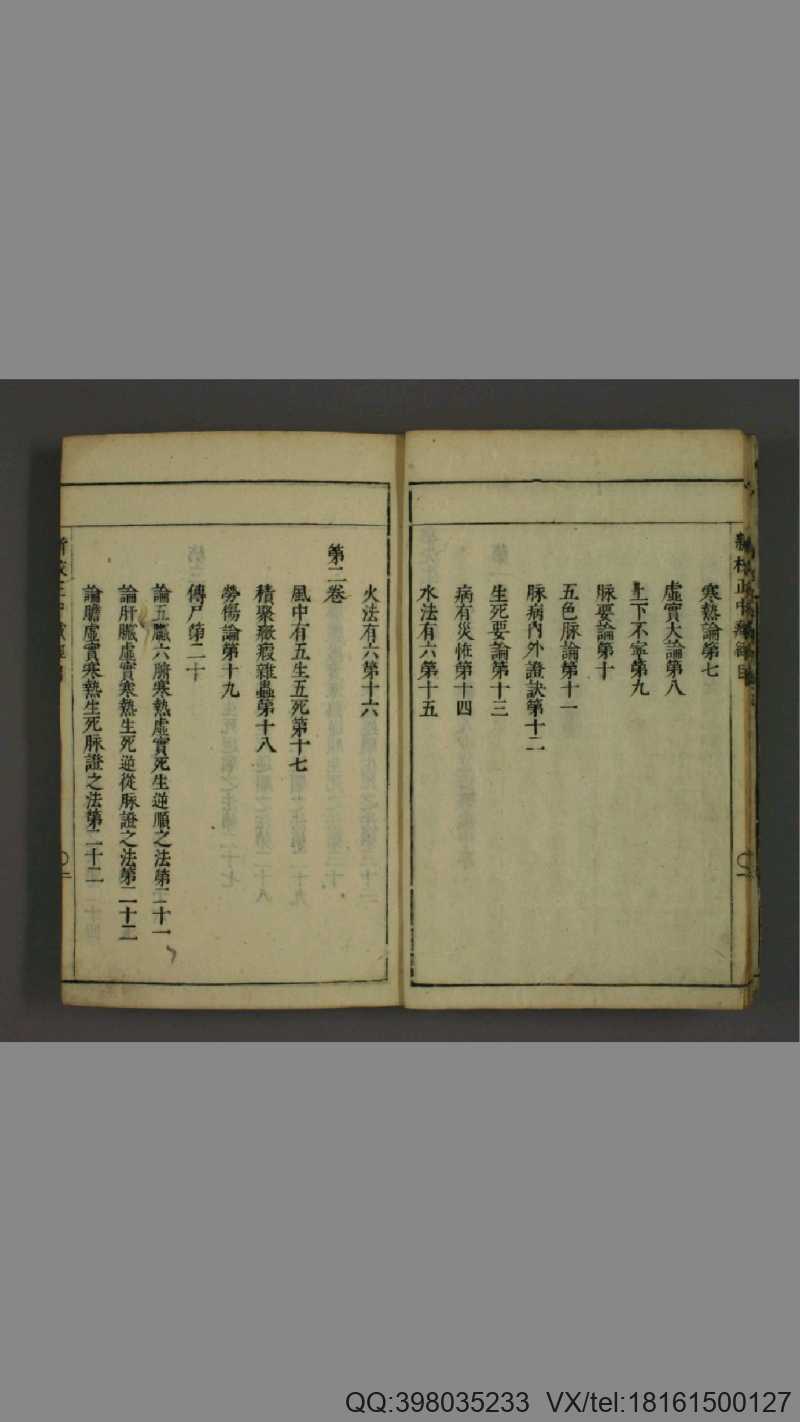 寒熱論第七
虛實大論第八
上下不寧第九
脉要論第十
五色脉論第十一
脉病內外證訣第十二
生死要論第十三
病有災恠第十四
水法有六第十五
火法有六第十六
第二卷
風中有五生五死第十七
積聚癥瘕雜蟲第十八
勞傷論第十九
傳尸第二十
論五臟六腑寒熱虛實死生逆順之法第二十一
論肝臟虛實寒熱生死逆從脉證之法第二十二
論膽虛實寒熱生死脉證之法第二十二
QQ:398035233 VX/tel:18161500127